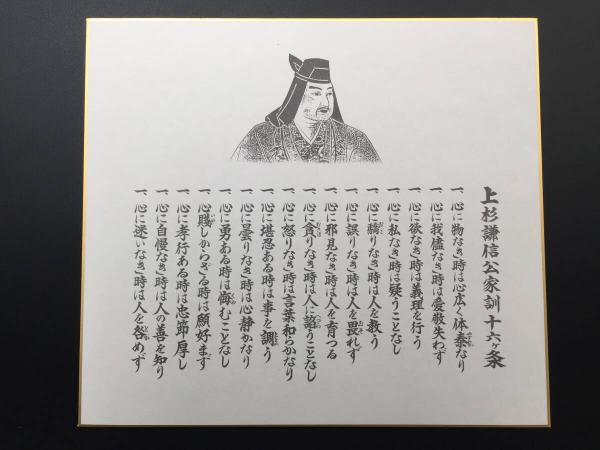 上杉謙信公家訓十六ヶ条
一、心に物なき時は心広く体泰なり
一、心に我儘なき時は愛敬失わず
一、心に欲なき時は義理を行う
一、心に私なき時は疑うことなし
一、心に驕りなき時は人を敬う
一、心に誤りなき時は人を畏れず
一、心に邪見なき時は人を育つる
一、心に貪りなき時は人に諂うことなし
一、心に怒りなき時は言葉和らかなり
一、心に堪忍ある時は事を調う
一、心に曇りなき時は心静かなり
一、心に勇ある時は悔むことなし
一、心賤しからざる時は願好まず
一、心に孝行ある時は忠節厚し
一、心に自慢なき時は人の善を知り
一、心に迷いなき時は人を咎めず